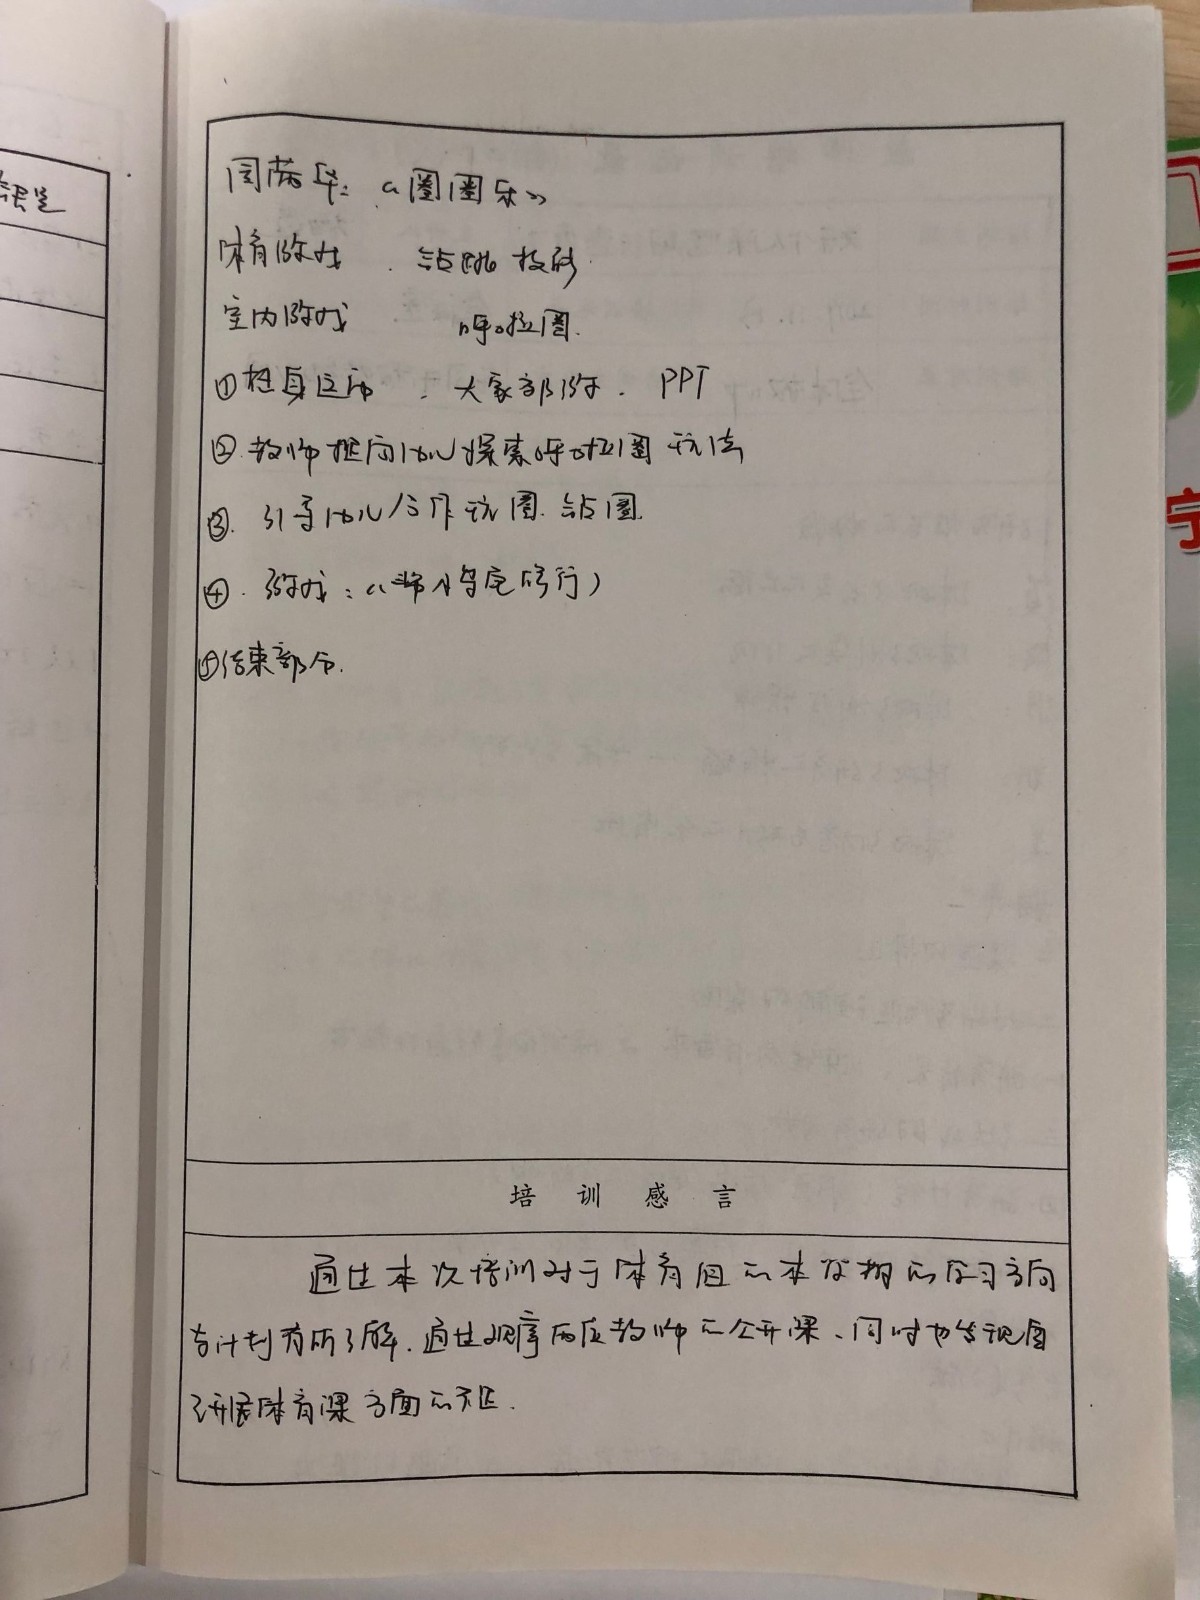 《圈圈乐》
体育游戏 . 钻跳投移
室内游戏 呼啦圈.
①热身运动 . 大家都游. PPT
②.教师提问幼儿探索呼啦圈玩法
③. 引导幼儿合作玩圈.钻圈.
④. 游戏:
⑤结束部分.
培训感言
通过本次培训对于体育组的本学期的学习方向
与计划有所了解.通过观摩两位教师的公开课、同时也发现自
己开展体育课方面的不足.